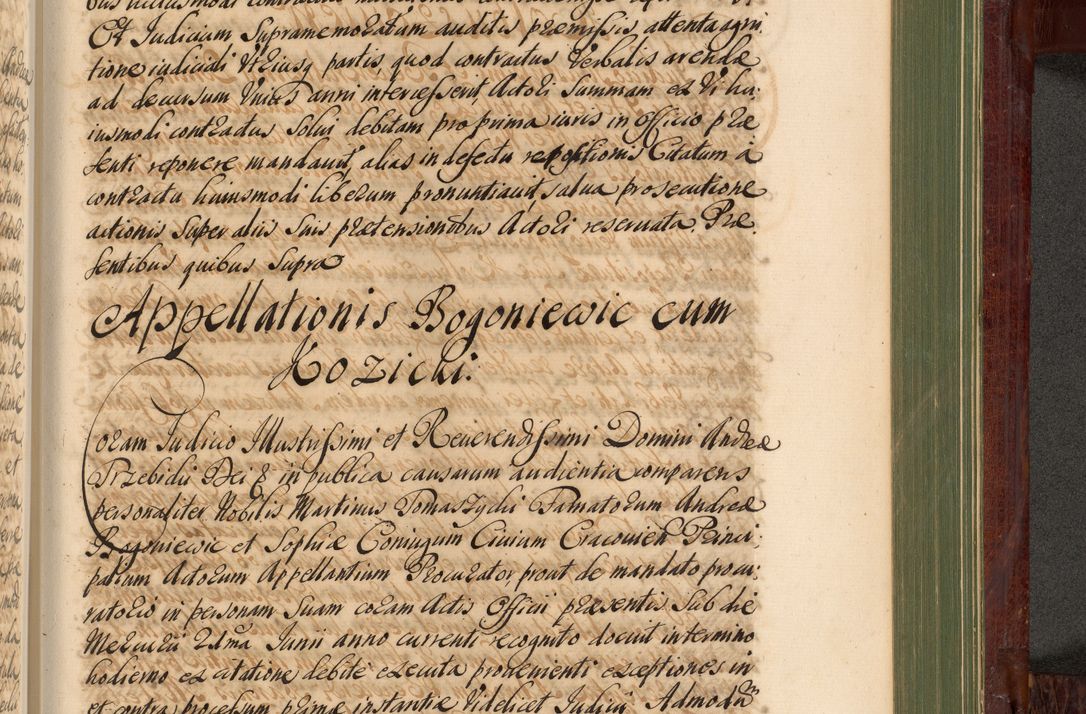 Et Judicium Supramemoratum auditis præmissis attenta agni:
tione iudiciali Utriusq partis, quod contractus Verbalis arendæ
ad decursum Unius anni intercesserit, Actori Summam ex Vi hu:
iusmodi contractus Solui debitam pro prima iuris in Officio præ
senti reponere mandauit, alias in defectu repositionis Citatum à
contractu huiusmodi liberum pronuntiauit, salua prosecutione
actionis Super aliis Suis prætensionibus Actori reseruata. Præ
sentibus quibus Supra
Appellationis Bogoniewic cum
Kozicki.
Coram Judicio Illustrissimi et Reuerendissimi Domini Andreæ
Trzebicki Dei & in publica causarum audientia comparens
personaliter Nobilis Martinus Tomaszycki Famatorum Andreæ
Bogoniewic et Sophiæ Coniugum Ciuium Cracouien Princi:
palium Actorum Appellantium Procurator prout de mandato procu:
ratorio in personam Suam coram Actis Officii præsentis Sub die
Mercurii 2dma Junii anno currenti recognito docuit in termino
hodierno ex citatione debite executa prouenienti exceptiones in
et contra processum primæ instantiæ Videlicet Judicii Admodum